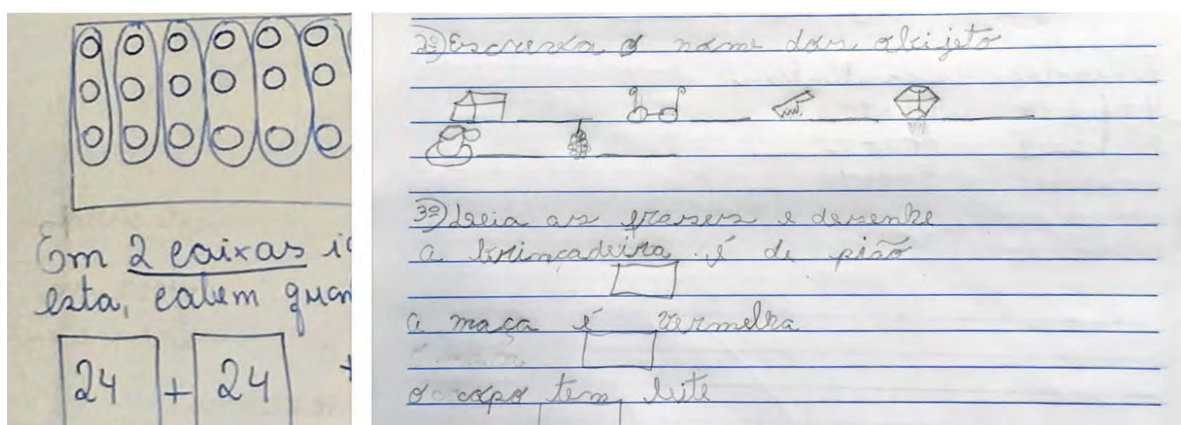 Em 2 caixas
esta, cabem quan
24 + 24 +
2º) Escreva o nome dos objeto
3º) Leia as frases e desenhe
a brincadeira é de pião
a maça é vermelha
o copo tem leite